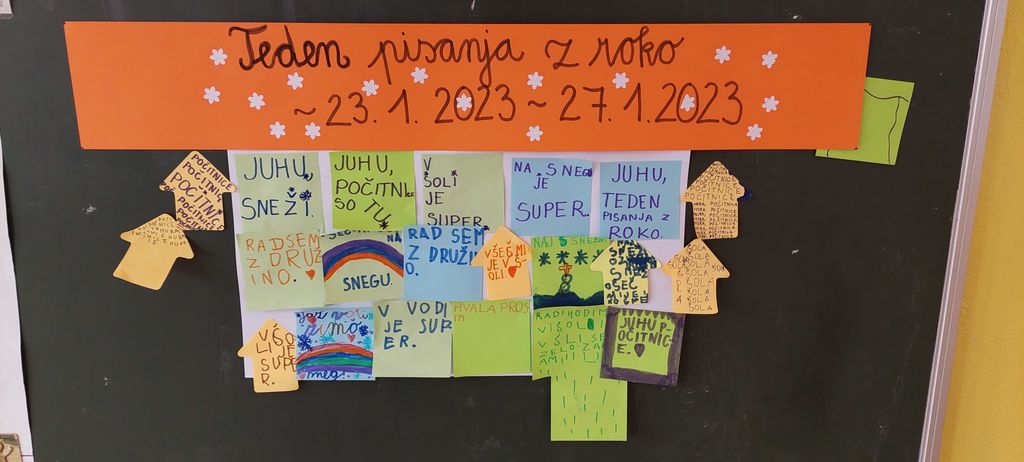 Teden pisanja z roko
~ 23. 1. 2023 ~ 27. 1. 2023
POČITNICE
POČITNICE
POČITNICE
POČITNICE
JUHU,
SNEŽI.
JUHU,
POČITNICE
SO TU.
V
ŠOLI
JE
SUPER.
NA SNEGU
JE
SUPER.
JUHU,
TEDEN
PISANJA Z
ROKO.
RAD SEM
Z DRUŽ
INO.
NA
SNEGU.
RAD SEM
Z DRUŽIN
O.
VŠEČ MI
JE V Š
OLI
NAJ SNEŽI
ŠOLA
ŠOLA
ŠOLA
ŠOLA
V ŠO
LI JE
SUPE
R.
zimo
V VODI
JE SUP
ER.
HVALA PROS
IM
RADI HODIM
V ŠOLO
V ŠOLI SE
JUHU P-
OČITNIC-
E.